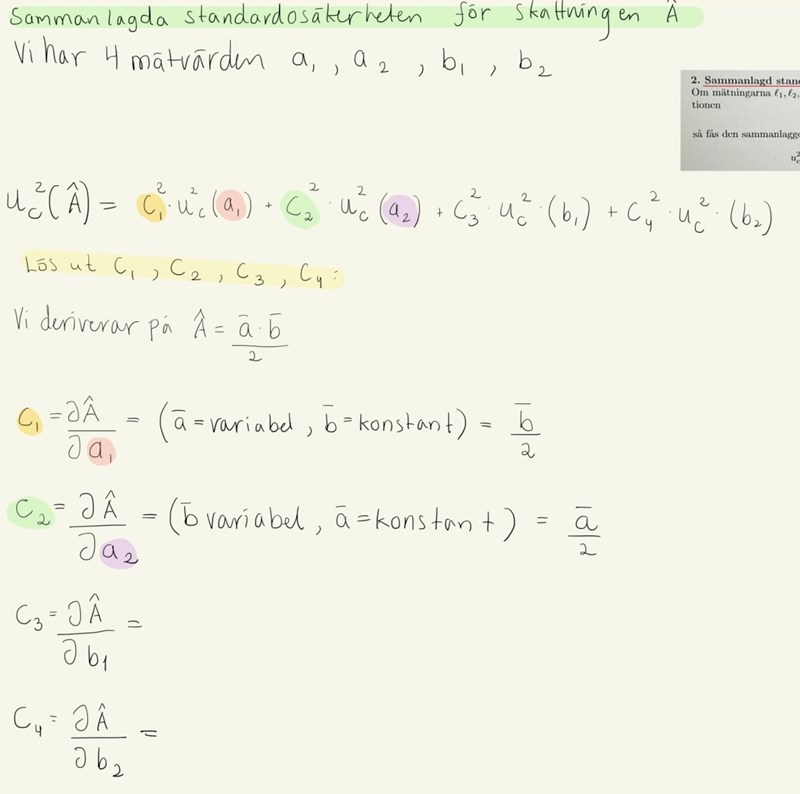 Sammanlagda standardosäkerheten för skattningen Â
Vi har 4 mätvärden a₁, a₂, b₁, b₂
2. Sammanlagd stan
Om mätningarna ℓ₁, ℓ₂,
tionen
så fås den sammanlagg
u_c²
u_c²(Â) = C₁² · u_c²(a₁) + C₂² · u_c²(a₂) + C₃² · u_c² · (b₁) + C₄² · u_c² · (b₂)
Lös ut C₁, C₂, C₃, C₄:
Vi deriverar på Â = ā · b̄ / 2
C₁ = ∂Â / ∂a₁ = (ā = variabel, b̄ = konstant) = b̄ / 2
C₂ = ∂Â / ∂a₂ = (b̄ variabel, ā = konstant) = ā / 2
C₃ = ∂Â / ∂b₁ =
C₄ = ∂Â / ∂b₂ =